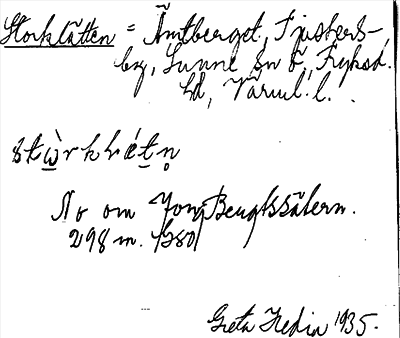 Storklätten = Ämtberget, Tjusters-
by, Sunne sn ö. Fryksd.
hd, Värml. l.
No om Jon Bengtssätern.
298 m. GSO
Greta Hedin 1935.